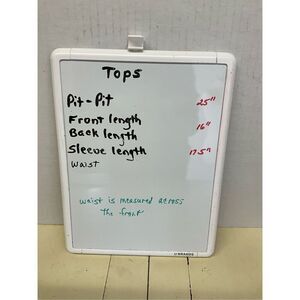 Tops
Pit - Pit 25"
Front length
Back length 16"
Sleeve length 17.5"
Waist
waist is measured across
The front
U BRANDS